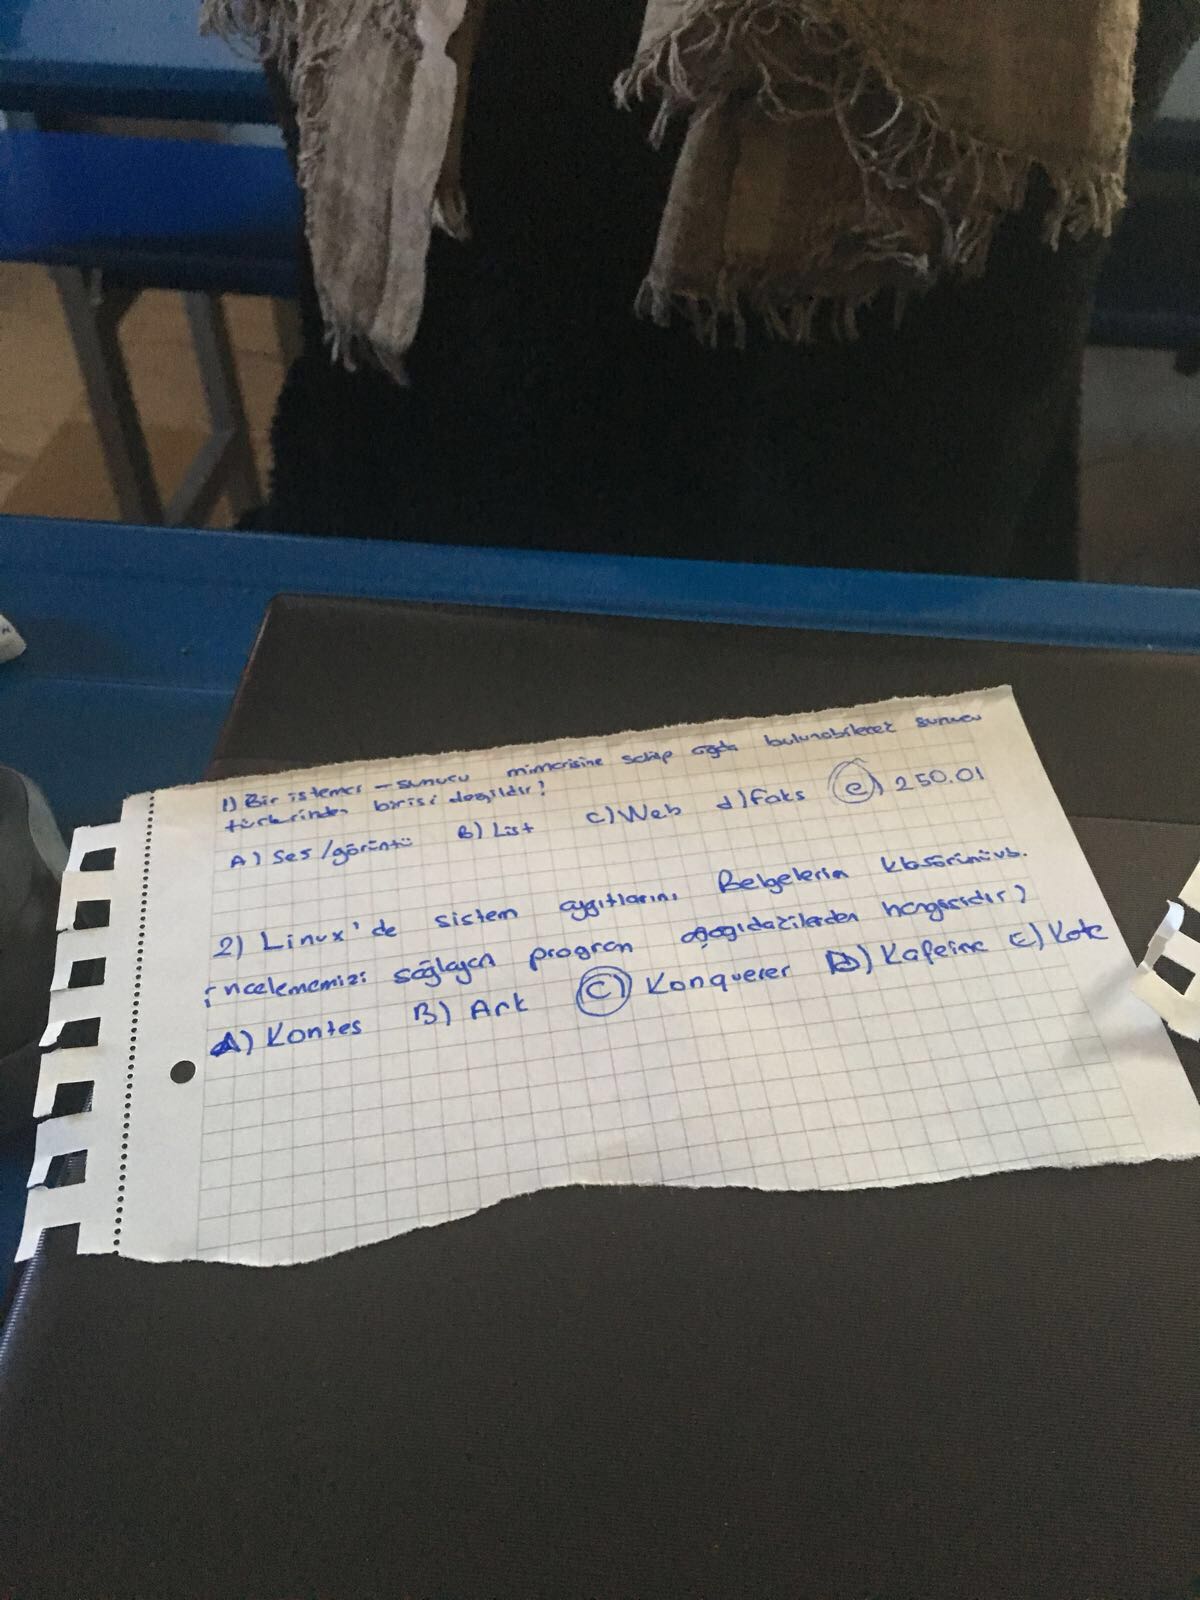 1) Bir istemci - sunucu mimarisine sahip ağda bulunabilecek sunucu
türlerinden birisi değildir?
A) Ses/görüntü B) List C) Web d) Faks e) 250.01
2) Linux'de sistem aygıtlarını, Belgelerin klasörünüvb.
incelememizi sağlayan program aşağıdakilerden hangisidir?
A) Kontes B) Ark C) Konquerer D) Kafeine E) Kate